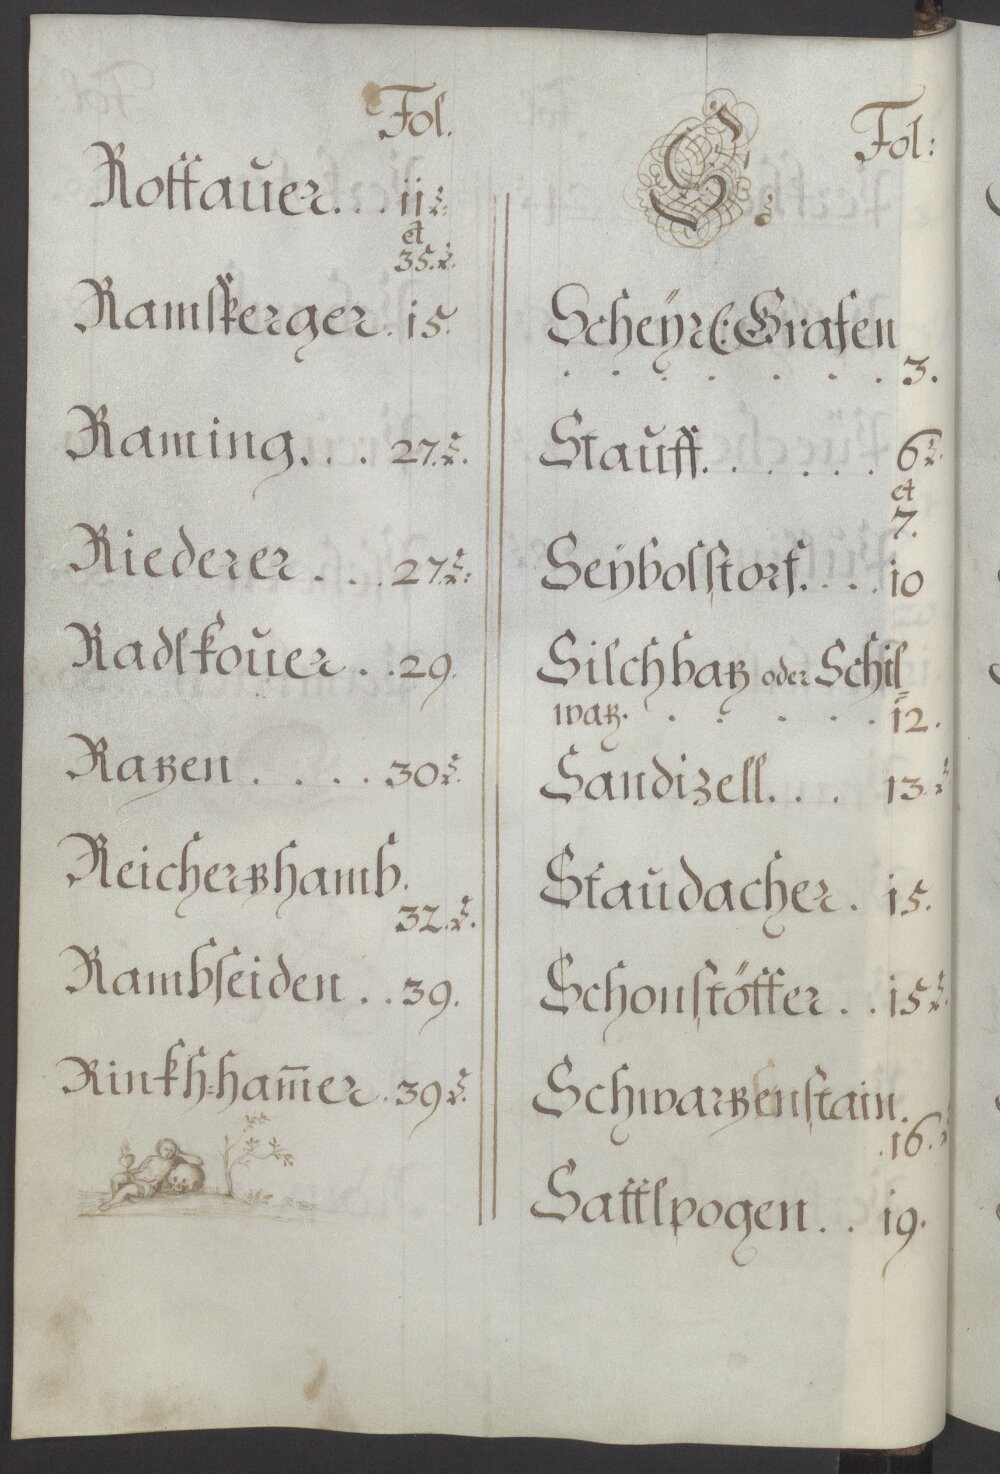 Fol.
Rottauer. . . 11 2.
et
35. 2.
Ramsperger. 15.
Raming. . . 27. 2.
Riederer . . . 27. 2:
Radlkouer . . 29.
Razen . . . . 30 2.
Reicherzhamb.
32. 2.
Rambseiden . . 39.
Rinkh-ham̄er . 39 2.
S.
Fol:
Scheÿrl: Grafen
. . . . . . . 3.
Stauff. . . . . . . 6 2.
et
7.
Seÿbolstorf. . . . 10
Silchbaz oder Schil=
waz. . . . . . 12.
Sandizell. . . . 13. 2
Staudacher . 15.
Schonstötter . . 15 2.
Schwarzenstain.
. 16. 2
Sattlpogen . . 19.